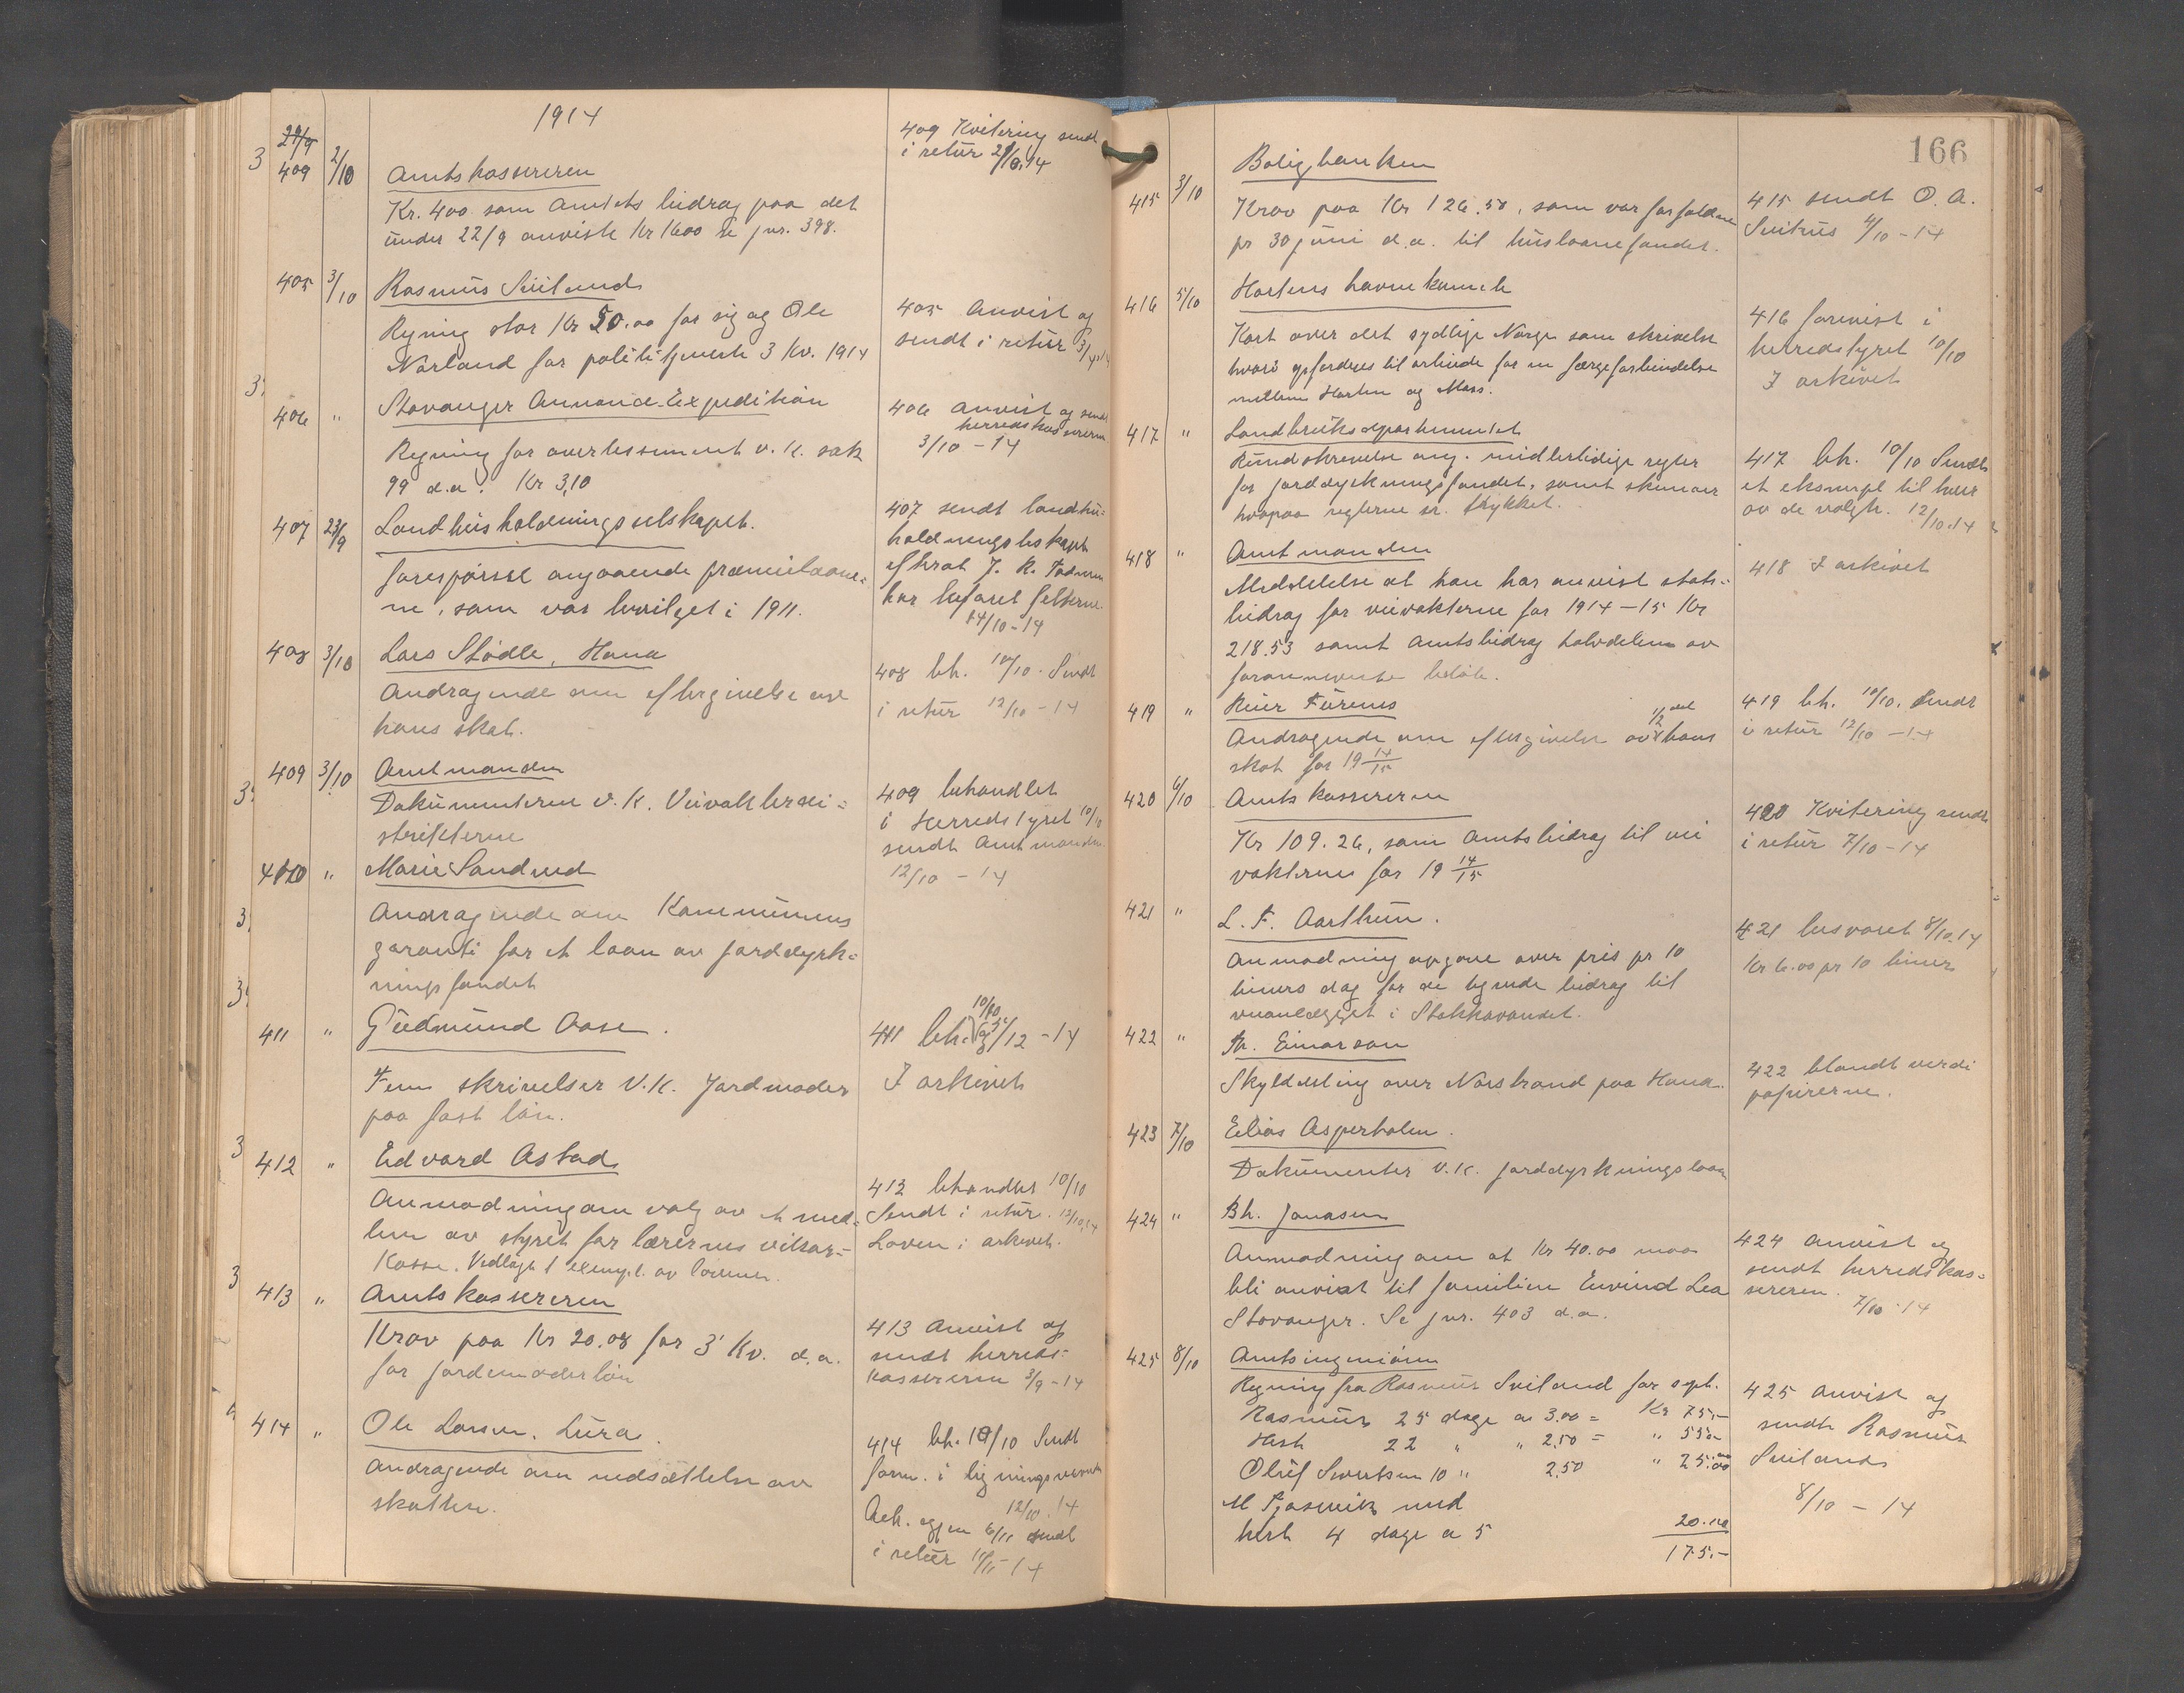 1914
29/9
409 2/10 Amtskassereren
Kr. 400 som Amtets bidrag paa det
under 22/9 anviste Kr 1600 se jnr. 398.
409 Kvitering sendt
i retur
405 3/10 Rasmus Sviland
Regning stor Kr 50.00 for sig og Ole
Norland for polititjeneste 3 Kv. 1914
405 Anvist og
sendt i retur
406 " Stavanger Annonce-Expedition
Regning for avertissement v. k. sak
99 d.a. Kr 3,10
406 anvist og sendt
herredskassereren
3/10 - 14
407 23/9 Landhusholdningsselskapet.
forespørsel angaaende præmielaane-
ne, som var bevilget i 1911.
407 sendt landhus-
holdningselskapet
efterat J. K. Todnem
har befaret felterne.
14/10 - 14
408 3/10 Lars Stødle, Hana
Andragende om eftergivelse av
hans skat.
408 bh. 10/10. Sendt
i retur 12/10 - 14
409 3/10 Amtmanden
Dokumenterne v. k. Veivokterdi-
strikterne
409 behandlet
i Herredstyret 10/10
sendt Amtmanden
12/10 - 14
410 " Marie Sandved
Andragende om Kommunens
garanti for et laan av jorddyrk-
ningsfondet
411 " Gudmund Aase.
Fem skrivelser v. k. Jordmoder
paa fast løn.
10/10
411 bh. /12 - 14
I arkivet
412 " Edvard Astad
Anmodning om valg av et med-
lem av styret for lærernes vikar-
kasse. Vedlagt 1 exempl. av lovene.
412 behandlet 10/10
Sendt i retur. 12/10.14
Loven i arkivet.
413 " Amtskassereren
Krav paa Kr 20.08 for 3' Kv. d.a.
for jordemoderløn
413 Anvist og
sendt herreds-
kassereren 3/9 - 14
414 " Ole Larsen, Lura.
Andragende om nedsættelse av
skatten.
414 bh. 10/10 Sendt
form. i ligningsvæsenet
12/10. 14
6/11 sendt
i retur 11/11 - 14
166
Boligbanken
415 3/10 Krav paa Kr 126.50, som var forfalden
pr 30 juni d.a. til huslaanefondet.
415 sendt O. A.
4/10 - 14
Hortens havnekomite
416 5/10 Kart over det sydlige Norge samt skrivelse
hvori opfordres til arbeide for en færgeforbindelse
mellem Horten og Moss.
416 forevist i
herredstyret 10/10
I arkivet
417 " Landbruksdepartementet
Rundskrivelse ang. midlertidige regler
for jorddyrkningsfondet, samt skemaer
hvorpaa reglerne er trykket.
417 bh. 10/10 Sendt
et eksempl til hver
av de valgte. 12/10.14
418 " Amtmanden
Meddelelse at han har anvist stats-
bidrag for veivokterne for 1914 - 15 Kr
218.53 samt Amtsbidrag halvdelen av
forannevnte beløb.
418 I arkivet
419 " Reier Furenes
Andragende om eftergivelse av 1/2 del hans
skat for 19 14/15
419 bh. 10/10. Sendt
i retur 12/10 - 14
420 6/10 Amtskassereren
Kr 109.26, som Amtsbidrag til vei
vokterne for 19 14/15
420 Kvitering sendt
i retur 7/10 - 14
421 " L. F. Aarthun.
Anmodning opgave over pris pr 10
timers dag for de tegnede bidrag til
veianlægget i Stokkavandet.
421 besvaret 8/10.14
Kr 6.00 pr 10 timer
422 " Th. Einarson
Skylddeling over Norstrand paa Hana.
422 blandt verdi
papirerne.
423 7/10 Elias Asperholen.
Dokumenter v. k. jorddyrkningslaan
424 " Bh. Jonasen
Anmodning om at Kr 40.00 maa
bli anvist til familien Eivind Lea
Stavanger. Se jnr. 403 d.a.
424 anvist og
sendt herredskas-
sereren.
7/10 - 14
425 8/10 Amtsingeniøren
Regning fra Rasmus Sviland for sept.
Rasmus 25 dage a 3.00 = Kr 75.-
Hest 22 " " 2,50 = " 55.-
Oluf Sivertsen 10 " 2,50 " 25.00
M med
hest 4 dage a 5 20.00
175.-
425 Anvist og
sendt Rasmus
Sviland
8/10 - 14